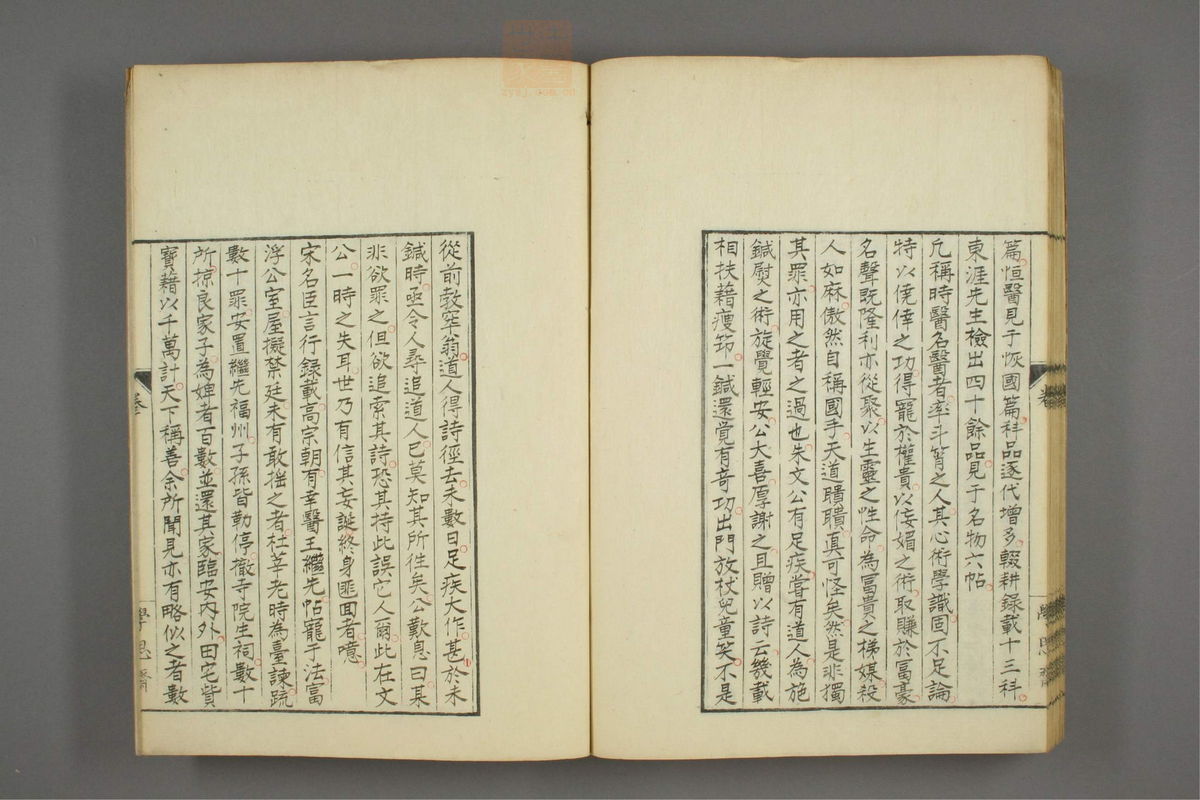 篇恒醫見于恢國篇科品逐代增多輟耕錄載十三科
東涯先生檢出四十餘品見于名物六帖
凡稱時醫名醫者率斗筲之人其心術學識固不足論
特以僥倖之功得寵於權貴以侫媚之術取賺於冨豪
名聲既隆利亦從聚以生靈之性命為冨貴之梯媒殺
人如麻傲然自稱國手天道聵聵真可怪矣然是非獨
其罪亦用之者之過也朱文公有足疾嘗有道人為施
鍼熨之術旋覺輕安公大喜厚謝之且贈以詩云幾載
相扶藉瘦筇一鍼還覚有奇功出門放杖兒童笑不是
從前勃窣翁道人得詩徑去未數日足疾大作甚於未
鍼時亟令人尋追道人已莫知其所徃矣公歎息曰某
非欲罪之但欲追索其詩恐其持此誤它人爾此在文
公一時之失耳世乃有信其妄誕終身匪回者噫
宋名臣言行錄載高宗朝有幸醫王繼先怙寵于法富
浮公室屋擬禁廷未有敢搖之者杜莘老時為臺諫疏
數十罪安置繼先福州子孫皆勒停撤寺院生祠數十
所掠良家子為婢者百數並還其家臨安内外田宅貲
寶藉以千萬計天下稱善余所聞見亦有略似之者數
卷
學思齋
zysj.com.cn